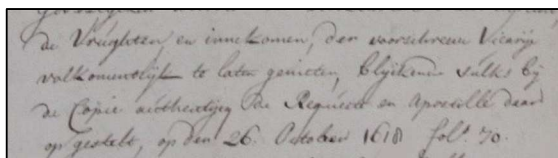 de Vrughten, en innekomen, der voorschreeve Vicarij
volkomentlijk te laten genieten, blijkende sulks bij
de Copie authentijcq de Requeste en apostille daar
op gestelt, op den 26. October 1618 fol. 70.